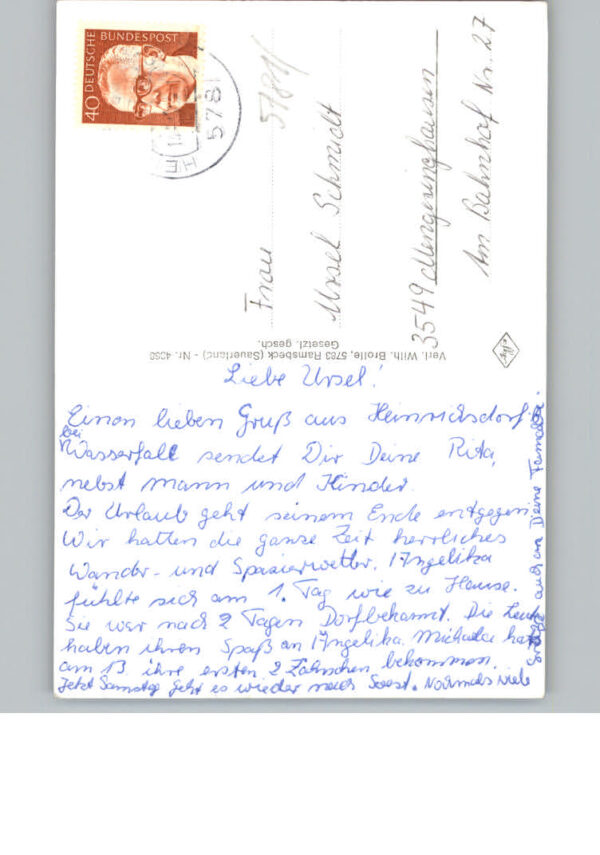 Liebe Ursel!
Einen lieben Gruß aus Heinrichsdorf
bei
Wasserfall sendet Dir Deine Rita,
nebst Mann und Kinder.
Der Urlaub geht seinem Ende entgegen.
Wir hatten die ganze Zeit herrliches
Wander- und Spazierwetter. Angelika
fühlte sich am 1. Tag wie zu Hause.
Sie war nach 2 Tagen Dorfbekannt. Die Leute
haben ihren Spaß an Angelika. Michaela hat
am 13. ihre ersten 2 Zähnchen bekommen.
Jetzt Samstag geht es wieder nach Soest. Nochmals viele
Grüße auch an Deine Familie.
40 DEUTSCHE BUNDESPOST
5781
5781
Frau
Ursel Schmidt
3549 Mengeringhausen
Am Bahnhof Nr. 27
Verl. Wilh. Brolle, 5783 Ramsbeck (Sauerland) - Nr.
Gesetzl. gesch.